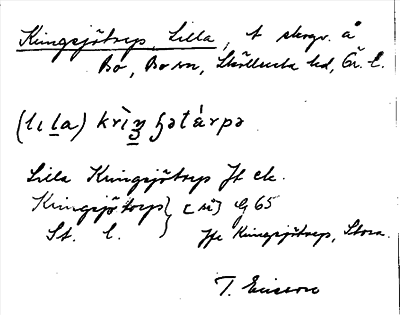 Kringsjötorp, Lilla, t skogv. å
Bo, Bo sn, Sköllersta hd, Ör. l.
(lɩ la) krìŋ ʃətárpə
Lilla Kringsjötorp Jt ek.
Kringsjötorp } [sic] G 65
St. l. } Jfr Kringsjötorp, Stora.
T. Ericson